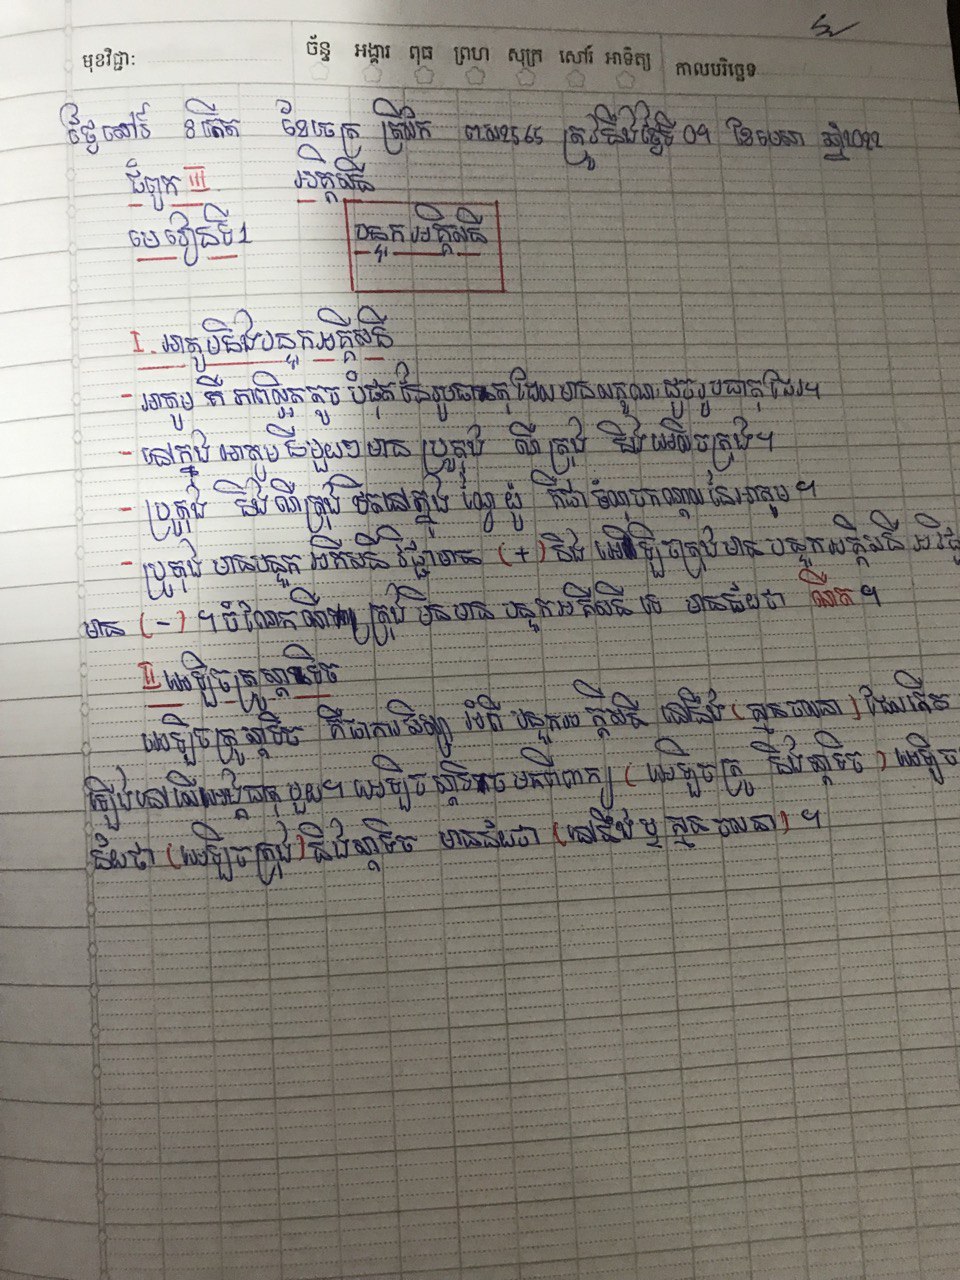 មុខវិជ្ជា: ច័ន្ទ អង្គារ ពុធ ព្រហ សុក្រ សៅរ៍ អាទិត្យ កាលបរិច្ឆេទ
ថ្ងៃសៅរ៍ ៩កើត ខែចេត្រ ត្រីស័ក ព.ស២៥៦៥ ត្រូវនឹងថ្ងៃទី 09 ខែមេសា ឆ្នាំ2022
ជំពូក III អគ្គិសនី
មេរៀនទី1 បន្ទុកអគ្គិសនី
I. អាតូមនិងបន្ទុកអគ្គិសនី
- អាតូម គឺ ភាគល្អិតតូច បំផុត នៃរូបធាតុ ដែលមានលក្ខណៈដូចរូបធាតុដែរ។
- នៅក្នុង អាតូម នីមួយៗ មាន ប្រូតុង ណឺត្រុង និង អេឡិចត្រុង។
- ប្រូតុង និង ណឺត្រុង ឋិតនៅក្នុង ណ្វៃយ៉ូ គឺជា ចំណុចកណ្តាលនៃអាតូម។
- ប្រូតុង មានបន្ទុក អគ្គិសនី វិជ្ជមាន (+) និង អេឡិចត្រុង មាន បន្ទុកអគ្គិសនី អវិជ្ជ
មាន (-) ។ ចំណែកណឺត្រុង មិនមាន បន្ទុកអគ្គិសនី ទេ មានន័យថា ណឺត ។
II អេឡិចត្រូស្តាទិច
អេឡិចត្រូស្តាទិច គឺជាការសិក្សា អំពី បន្ទុកអគ្គិសនី នៅនឹង (គ្មានចលនា) ដែលកើត
ឡើងនៅលើអង្គធាតុមួយ។ អេឡិចស្តាទិច មកពីពាក្យ (អេឡិចត្រូ និងស្តាទិច) អេឡិច
ន័យថា (អេឡិចត្រុង) និងស្តាទិច មានន័យថា (នៅនឹង ឬ គ្មានចលនា) ។